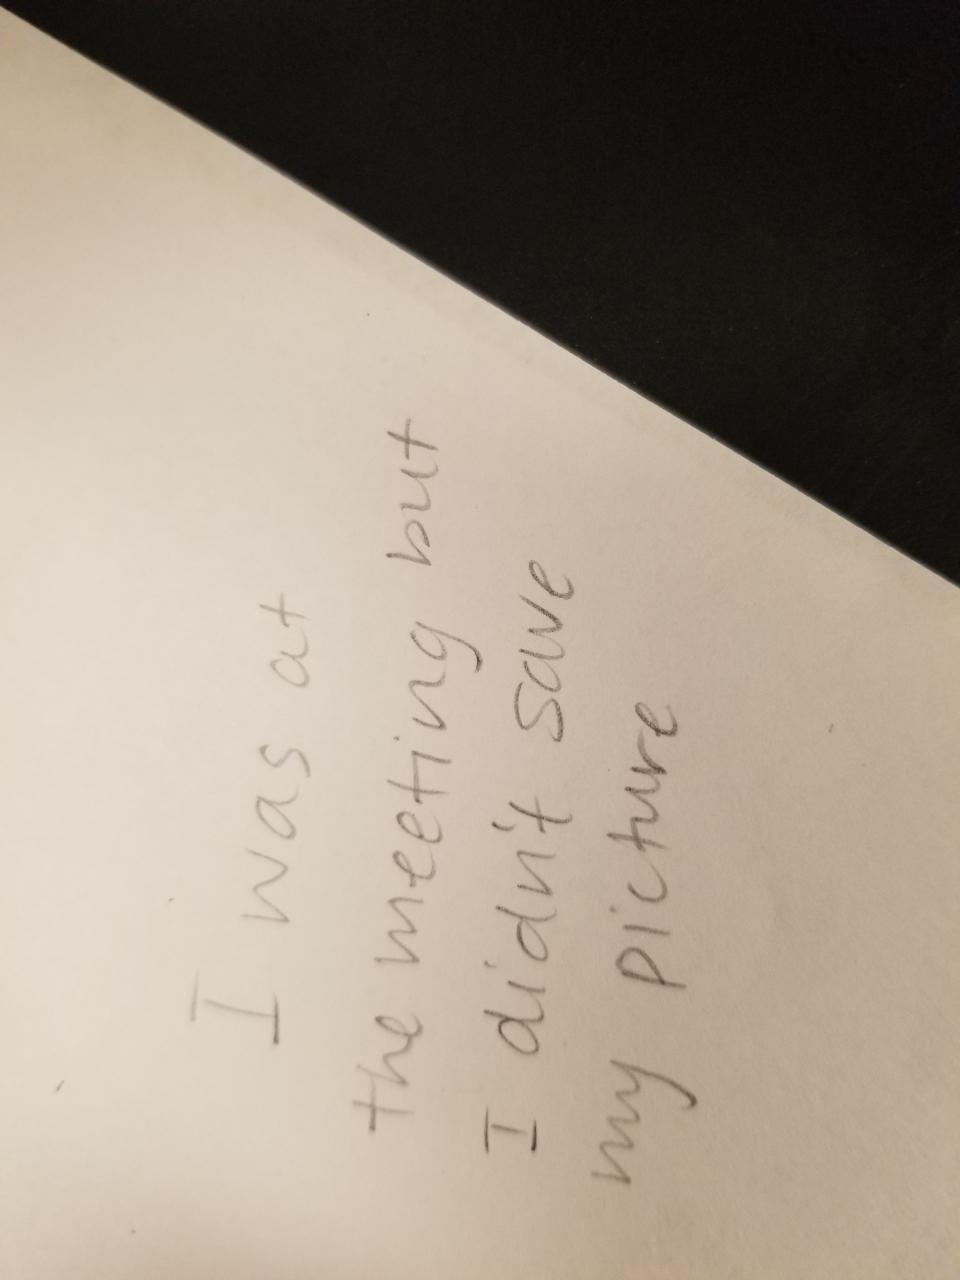 I was at
the meeting but
I didn't save
my picture